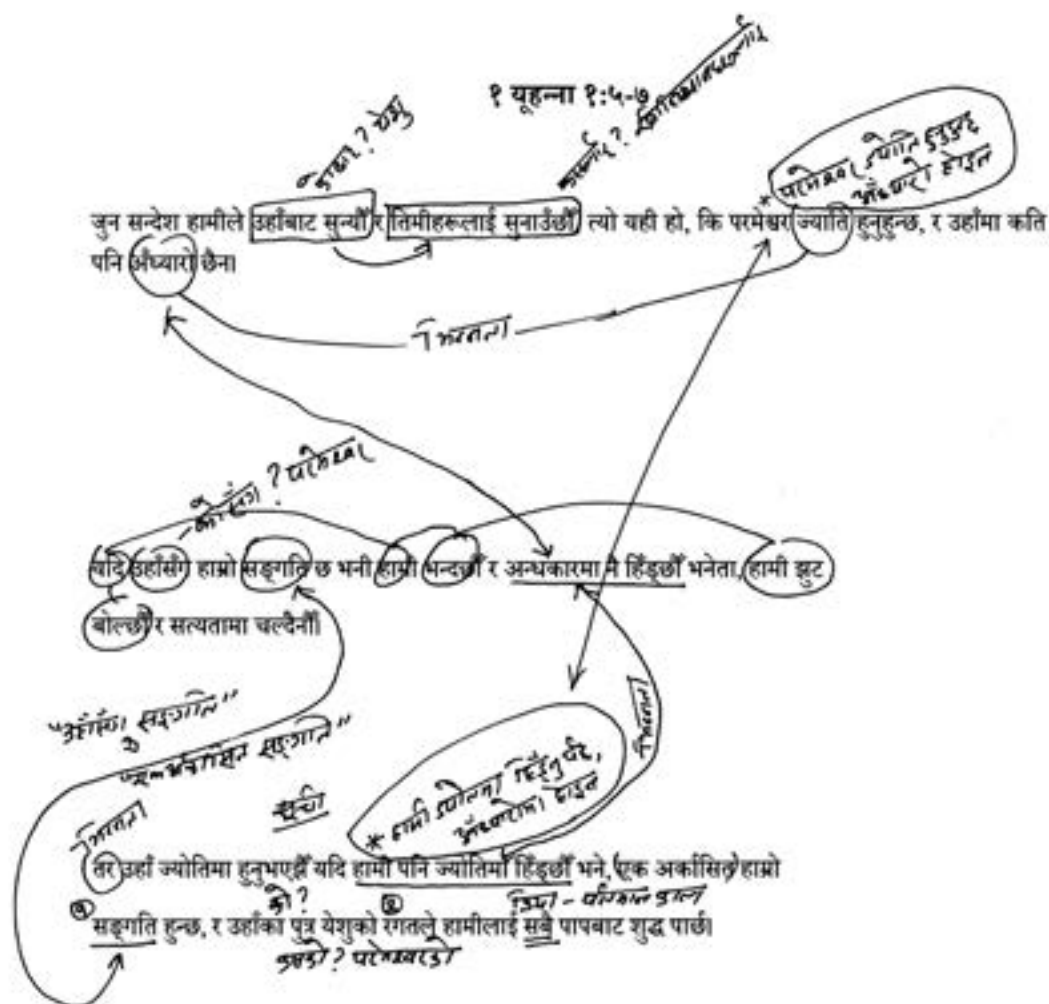 १ यूहन्ना १:५-७
कोबाट? येशु
* परमेश्वर ज्योति हुनुहुन्छ
अँध्यारो होइन
जुन सन्देश हामीले उहाँबाट सुन्यौं र तिमीहरूलाई सुनाउँछौं त्यो यही हो, कि परमेश्वर ज्याति हुनुहुन्छ, र उहाँमा कति
पनि अँध्यारो छैन।
भिन्नता
को सँग? परमेश्वर
यदि उहाँसँग हाम्रो सङ्गति छ भनी हामी भन्दछौं र अन्धकारमा नै हिँड्छौं भनेता, हामी झुट
बोल्छौं र सत्यतामा चल्दैनौं।
भिन्नता
"उहाँसँग सङ्गति"
"एक अर्कासित सङ्गति"
* हामी ज्योतिमा हिँड्नु पर्दछ,
अँध्यारोमा होइन
सूची
भिन्नता
तर उहाँ ज्योतिमा हुनुभएझैँ यदि हामी पनि ज्योतिमा हिँड्छौं भने, एक अर्कासित हाम्रो
को?
क्रिया - वर्तमान काल
१
२
सङ्गति हुन्छ, र उहाँका पुत्र येशुको रगतले हामीलाई सबै पापबाट शुद्ध पार्छ।
कसको? परमेश्वरको